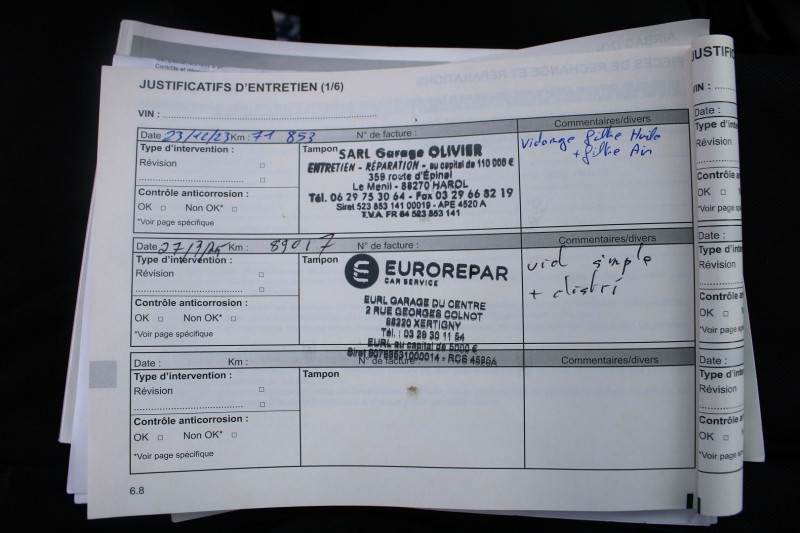 JUSTIFICATIFS D'ENTRETIEN (1/6)
VIN :
Date 23/12/23 Km : 71 853 N° de facture : Commentaires/divers
Type d'intervention :
Révision
Contrôle anticorrosion :
OK Non OK*
*Voir page spécifique
Tampon
SARL Garage OLIVIER
ENTRETIEN - RÉPARATION - au capital de 110 000 €
359 route d'Épinal
Le Menil - 88270 HAROL
Tél. 06 29 75 30 64 - Fax 03 29 66 82 19
Siret 523 853 141 00019 - APE 4520 A
T.V.A FR 64 523 853 141
Vidange filtre Huile
+ filtre Air
Date 27/3/25 Km : 89017 N° de facture : Commentaires/divers
Type d'intervention :
Révision
Contrôle anticorrosion :
OK Non OK*
*Voir page spécifique
Tampon
EUROREPAR
CAR SERVICE
EURL GARAGE DU CENTRE
2 RUE GEORGES COLNOT
88220 XERTIGNY
Tél. : 03 29 30 11 54
EURL au capital de 5000 €
vid simple
+ distri
Date : Km : N° de facture Commentaires/divers
Type d'intervention :
Révision
Contrôle anticorrosion :
OK Non OK*
*Voir page spécifique
Tampon
6.8
JUSTIFI
VIN :
Date :
Type d'in
Révision
Contrôle a
OK
*Voir page
Date :
Type d'in
Révision
Contrôle
OK
*Voir page
Date :
Type d'in
Révision
Contrôle
OK
*Voir page s